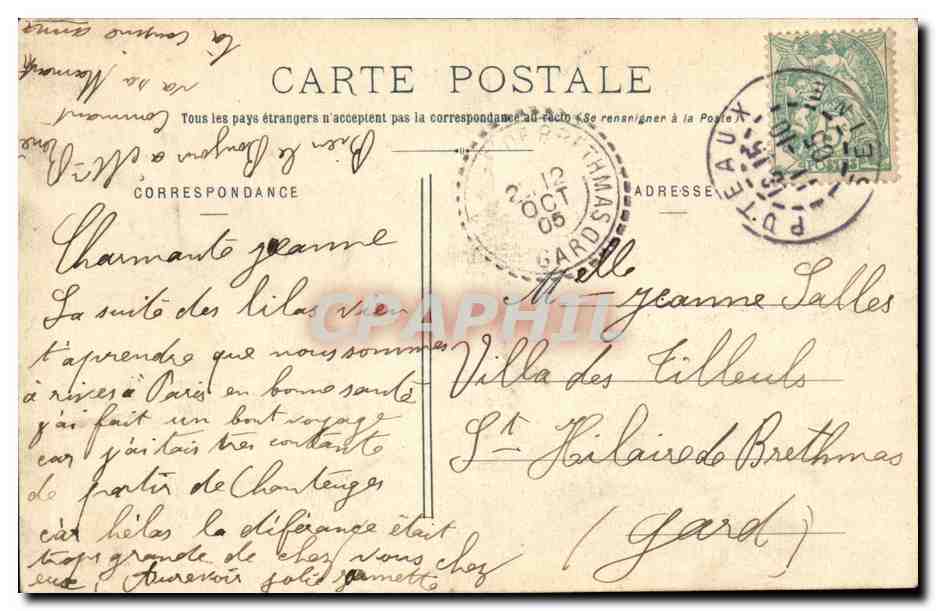 CARTE POSTALE
Tous les pays étrangers n'acceptent pas la correspondance au recto (Se renseigner à la Poste)
CORRESPONDANCE
ADRESSE
Charmante jeanne
La suite des lilas vien
t'aprendre que nous sommes
à rives à Paris en bonne santé
j'ai fait un bont voyage
car j'aitais tres contante
de partir de Chanteuges
càr hélas la diférance était
trops grande de chez vous chez
eux, Aurevoir jolie jeannette
Bien le Bonjour a
Comment
va sa Maman
ta cousine anna
Mlle jeanne Salles
Villa des Tilleuls
St Hilaire de Brethmas
(gard)
BRETHMAS
12
OCT
05
GARD
PUTEAUX
SEINE
CPAPHIL